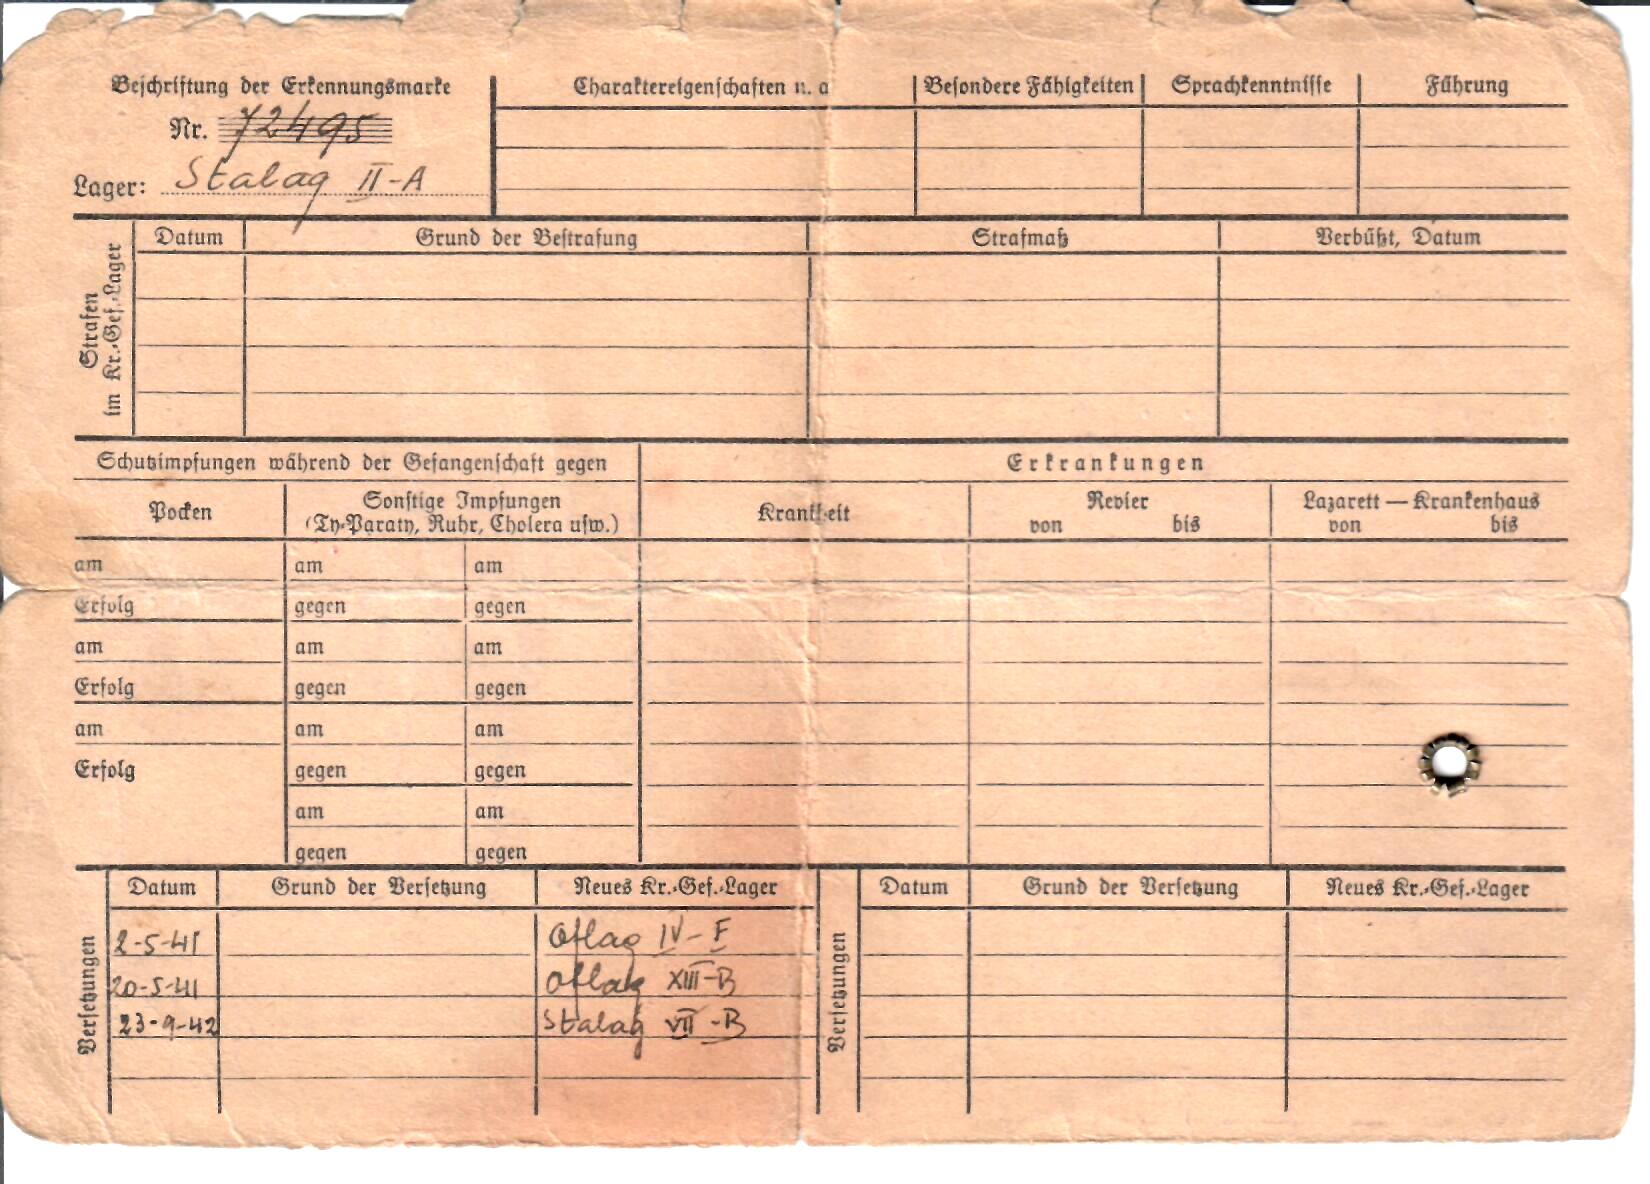 Beschriftung der Erkennungsmarke
Nr. 72495
Lager: Stalag II-A
Charaktereigenschaften u. a
Besondere Fähigkeiten
Sprachkenntnisse
Führung
Strafen
im Kr.-Gef.-Lager
Datum
Grund der Bestrafung
Strafmaß
Verbüßt, Datum
Schutzimpfungen während der Gefangenschaft gegen
Erkrankungen
Pocken
Sonstige Impfungen
(Ty-Paraty, Ruhr, Cholera usw.)
Krankheit
Revier
von bis
Lazarett — Krankenhaus
von bis
am am am
Erfolg gegen gegen
am am am
Erfolg gegen gegen
am am am
Erfolg gegen gegen
am am
gegen gegen
Versetzungen
Datum Grund der Versetzung Neues Kr.-Gef.-Lager
2-5-41 Oflag IV-F
20-5-41 Oflag XIII-B
23-9-42 Stalag VII-B
Versetzungen
Datum Grund der Versetzung Neues Kr.-Gef.-Lager